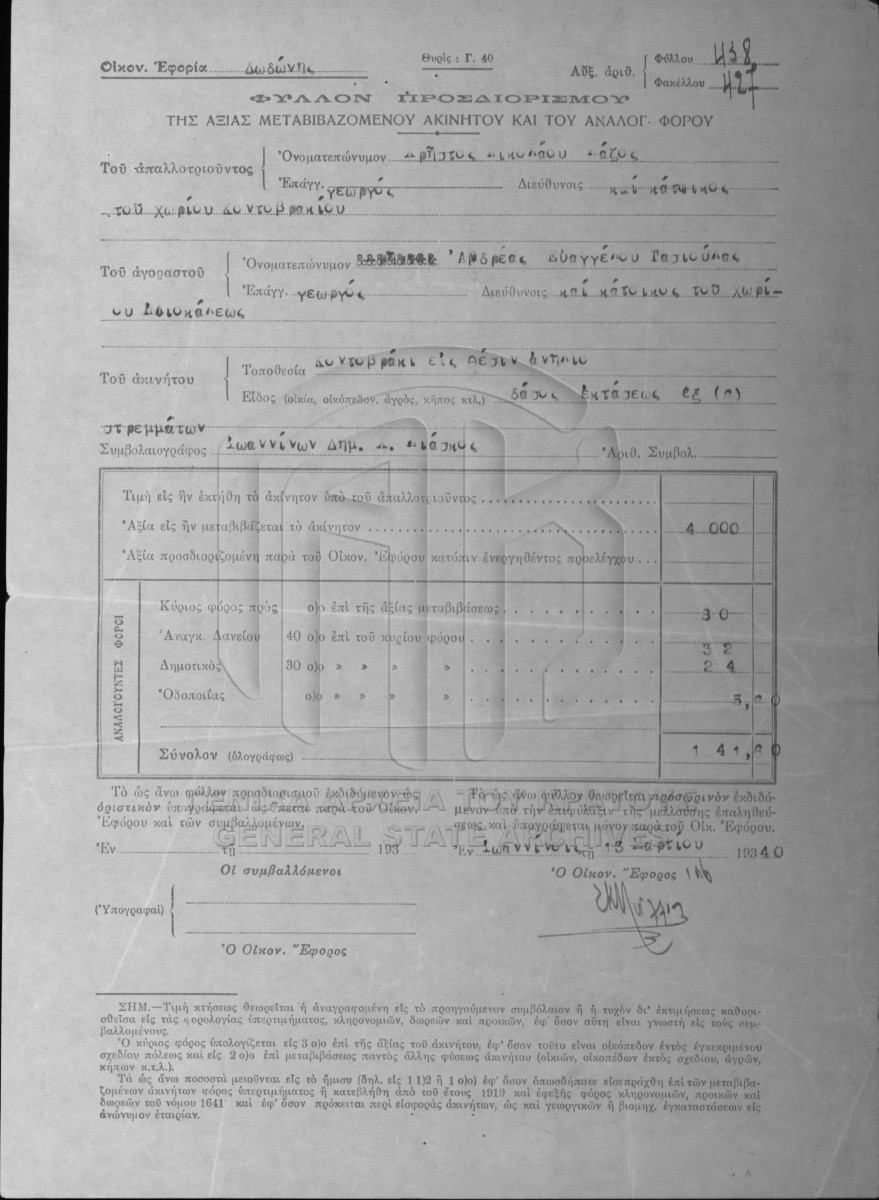 Οἰκον. Ἐφορία Δωδώνης
Θυρὶς : Γ. 40
Αὔξ. ἀριθ.
Φύλλου 438
Φακέλλου 427
ΦΥΛΛΟΝ ΠΡΟΣΔΙΟΡΙΣΜΟΥ
ΤΗΣ ΑΞΙΑΣ ΜΕΤΑΒΙΒΑΖΟΜΕΝΟΥ ΑΚΙΝΗΤΟΥ ΚΑΙ ΤΟΥ ΑΝΑΛΟΓ· ΦΟΡΟΥ
Τοῦ ἀπαλλοτριοῦντος
Ὀνοματεπώνυμον Χρῆστος Νικολάου
Ἐπάγγ. γεωργός Διεύθυνσις καί κάτοικος
τοῦ χωρίου Κοντοβρακίου
Τοῦ ἀγοραστοῦ
Ὀνοματεπώνυμον Ἀνδρέας Εὐαγγέλου
Ἐπάγγ. γεωργός Διεύθυνσις καί κάτοικος τοῦ χωρί-
ου
Τοῦ ἀκινήτου
Τοποθεσία Κοντοβράκι εἰς θέσιν
Εἶδος (οἰκία, οἰκόπεδον. ἀγρός, κῆπος κτλ.) δάσος ἐκτάσεως ἕξ
στρεμμάτων
Συμβολαιογράφος Ἰωαννίνων Δημ. Ἀριθ. Συμβολ.
Τιμὴ εἰς ἣν ἐκτήθη τὸ ἀκίνητον ὑπὸ τοῦ ἀπαλλοτριοῦντος
Ἀξία εἰς ἣν μεταβιβάζεται τὸ ἀκίνητον 4 000
Ἀξία προσδιοριζομένη παρὰ τοῦ Οἰκον. Ἐφόρου κατόπιν ἐνεργηθέντος προελέγχου
ΑΝΑΛΟΓΟΥΝΤΕΣ ΦΟΡΟΙ
Κύριος φόρος πρὸς ο)ο ἐπὶ τῆς ἀξίας μεταβιβάσεως
Ἀναγκ. Δανείου 40 ο)ο ἐπὶ τοῦ κυρίου φόρου 32
Δημοτικὸς 30 ο)ο » » » » 24
Ὁδοποιΐας ο)ο » » » »
Σύνολον (ὁλογράφως)
Τὸ ὡς ἄνω φύλλον προσδιορισμοῦ ἐκδιδόμενον ὡς
ὁριστικὸν ὑπογράφεται ὡς ἕπεται παρὰ τοῦ Οἰκον.
Ἐφόρου καὶ τῶν συμβαλλομένων.
Ἐν τῇ 193
Οἱ συμβαλλόμενοι
(Ὑπογραφαὶ)
Ὁ Οἰκον. Ἔφορος
Τὸ ὡς ἄνω φύλλον θεωρεῖται προσωρινὸν ἐκδιδό-
μενον ὑπὸ τὴν ἐπιφύλαξιν τῆς μελλούσης ἐπαληθεύ-
σεως καὶ ὑπογράφεται μόνον παρὰ τοῦ Οἰκ. Ἐφόρου.
Ἐν Ἰωαννίνοις τῇ 15 Μαρτίου 19340
Ὁ Οἰκον. Ἔφορος
GENERAL STATE ARCHIVES
ΣΗΜ.—Τιμὴ κτήσεως θεωρεῖται ἡ ἀναγραφομένη εἰς τὸ προηγούμενον συμβόλαιον ἢ ἡ τυχὸν δι' ἐκτιμήσεως καθορι-
σθεῖσα εἰς τὰς φορολογίας ὑπερτιμήματος, κληρονομιῶν, δωρεῶν καὶ προικῶν, ἐφ' ὅσον αὕτη εἶναι γνωστὴ εἰς τοὺς συμ-
βαλλομένους.
Ὁ κύριος φόρος ὑπολογίζεται εἰς 3 ο)ο ἐπὶ τῆς ἀξίας τοῦ ἀκινήτου, ἐφ' ὅσον τοῦτο εἶναι οἰκόπεδον ἐντὸς ἐγκεκριμένου
σχεδίου πόλεως καὶ εἰς 2 ο)ο ἐπὶ μεταβιβάσεως παντὸς ἄλλης φύσεως ἀκινήτου (οἰκιῶν, οἰκοπέδων ἐκτὸς σχεδίου, ἀγρῶν,
κήπων κ.τ.λ.).
Τὰ ὡς ἄνω ποσοστὰ μειοῦνται εἰς τὸ ἥμισυ (δηλ. εἰς 1 1)2 ἢ 1 ο)ο) ἐφ' ὅσον ὁπωσδήποτε εἰσεπράχθη ἐπὶ τῶν μεταβιβα-
ζομένων ἀκινήτων φόρος ὑπερτιμήματος ἢ κατεβλήθη ἀπὸ τοῦ ἔτους 1919 καὶ ἐφεξῆς φόρος κληρονομιῶν, προικῶν καὶ
δωρεῶν τοῦ νόμου 1641 καὶ ἐφ' ὅσον πρόκειται περὶ εἰσφορᾶς ἀκινήτων, ὡς καὶ γεωργικῶν ἢ βιομηχ. ἐγκαταστάσεων εἰς
ἀνώνυμον ἑταιρίαν.